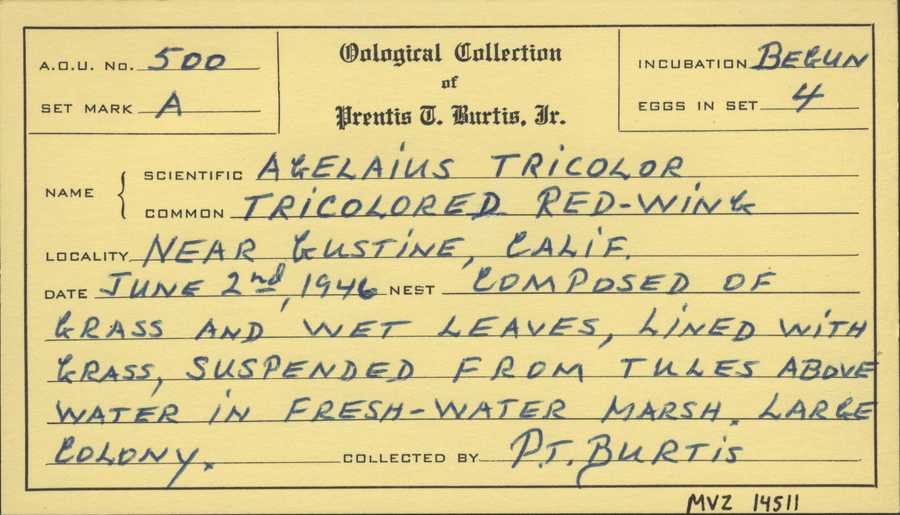 A.O.U. No. 500
SET MARK A
Oological Collection
of
Prentis T. Burtis, Jr.
INCUBATION BEGUN
EGGS IN SET 4
NAME { SCIENTIFIC AGELAIUS TRICOLOR
COMMON TRICOLORED RED-WING
LOCALITY NEAR GUSTINE, CALIF.
DATE JUNE 2nd, 1946 NEST COMPOSED OF
GRASS AND WET LEAVES, LINED WITH
GRASS, SUSPENDED FROM TULES ABOVE
WATER IN FRESH-WATER MARSH. LARGE
COLONY. COLLECTED BY P.T. BURTIS
MVZ 14511